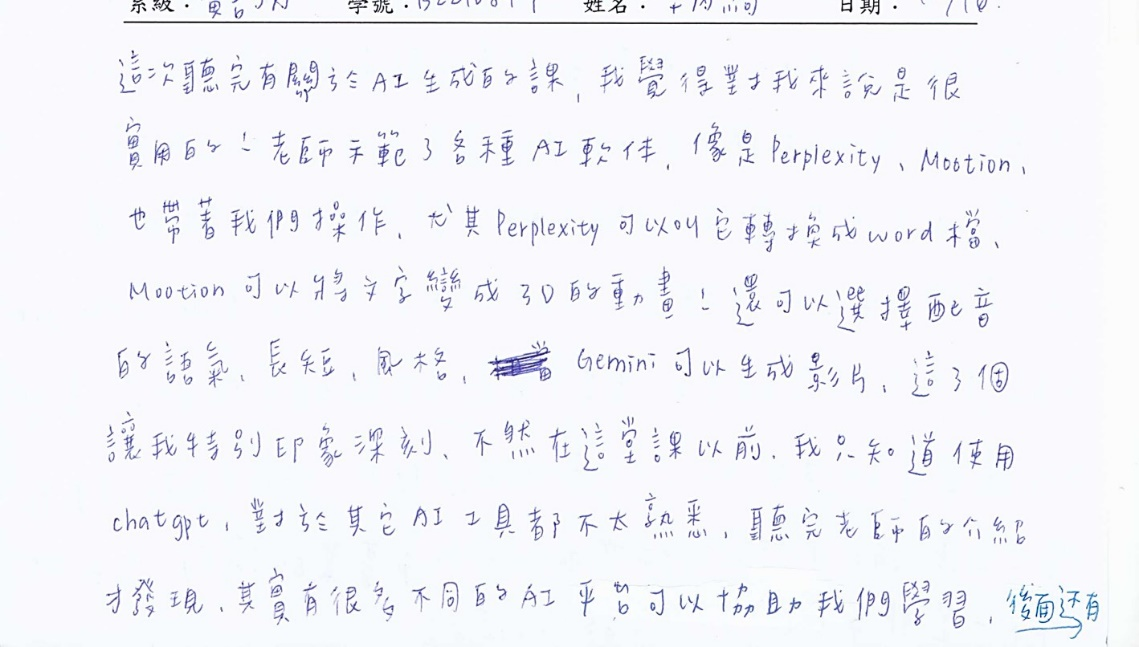 系級： 學號： 姓名： 日期：
這次聽完有關於AI生成的課，我覺得對我來說是很
實用的！老師示範了各種AI軟件，像是Perplexity、Mootion，
也帶著我們操作，尤其Perplexity可以叫它轉換成word檔、
Mootion可以將文字變成3D的動畫！還可以選擇配音
的語氣、長短、風格，Gemini可以生成影片，這3個
讓我特別印象深刻、不然在這堂課以前，我只知道使用
chatgpt，對於其它AI工具都不太熟悉，聽完老師的介紹
才發現，其實有很多不同的AI平台可以協助我們學習，後面还有